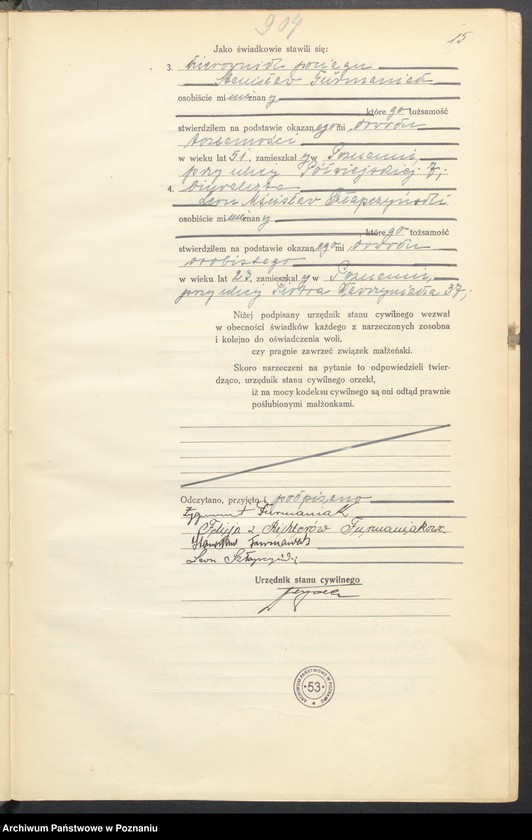 904
15
Jako świadkowie stawili się:
3. kierownik pociągu
Stanisław Furmaniak
osobiście mi nieznany
, które go tożsamość
stwierdziłem na podstawie okazanego mi dowodu
tożsamości
w wieku lat 51, zamieszkały w Poznaniu,
przy ulicy Półwiejskiej 7;
4. biuralista
Leon Mścisław
osobiście mi nieznany
, które go tożsamość
stwierdziłem na podstawie okazanego mi dowodu
osobistego
w wieku lat 23, zamieszkały w Poznaniu,
przy ulicy Piotra Wawrzyniaka 37;
Niżej podpisany urzędnik stanu cywilnego wezwał
w obecności świadków każdego z narzeczonych zosobna
i kolejno do oświadczenia woli,
czy pragnie zawrzeć związek małżeński.
Skoro narzeczeni na pytanie to odpowiedzieli twier-
dząco, urzędnik stanu cywilnego orzekł,
iż na mocy kodeksu cywilnego są oni odtąd prawnie
poślubionymi małżonkami.
Odczytano, przyjęto i podpisano
Zygmunt Furmaniak
z Richterów Furmaniakowa
Stanisław Furmaniak
Leon
Urzędnik stanu cywilnego
ARCHIWUM PAŃSTWOWE W POZNANIU
53
Archiwum Państwowe w Poznaniu